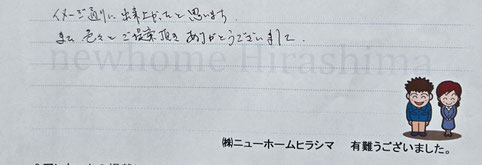 イメージ通りに出来上がったと思います
また 色々とご提案頂き ありがとうございました.
newhome Hirashima
㈱ニューホームヒラシマ 有難うございました。